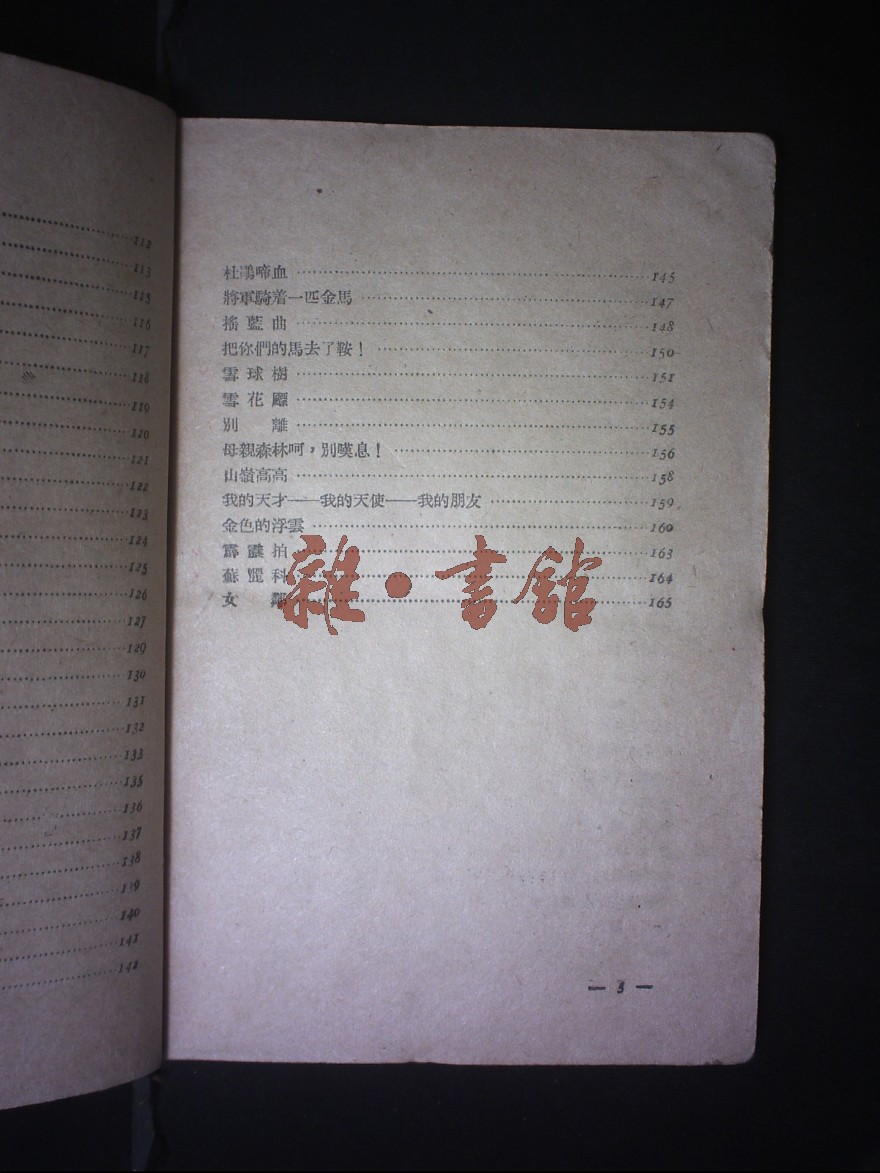 112
113
115
116
117
118
119
120
121
122
123
124
125
126
127
129
130
131
132
133
135
136
137
138
139
140
141
142
杜鵑啼血 145
將軍騎着一匹金馬 147
搖藍曲 148
把你們的馬去了鞍! 150
雪球樹 151
雪花飄 154
別離 155
母親森林呵,別嘆息! 156
山嶺高高 158
我的天才——我的天使——我的朋友 159
金色的浮雲 160
霹靂拍 163
蘇麗科 164
女 165
雜·書館
— 5 —